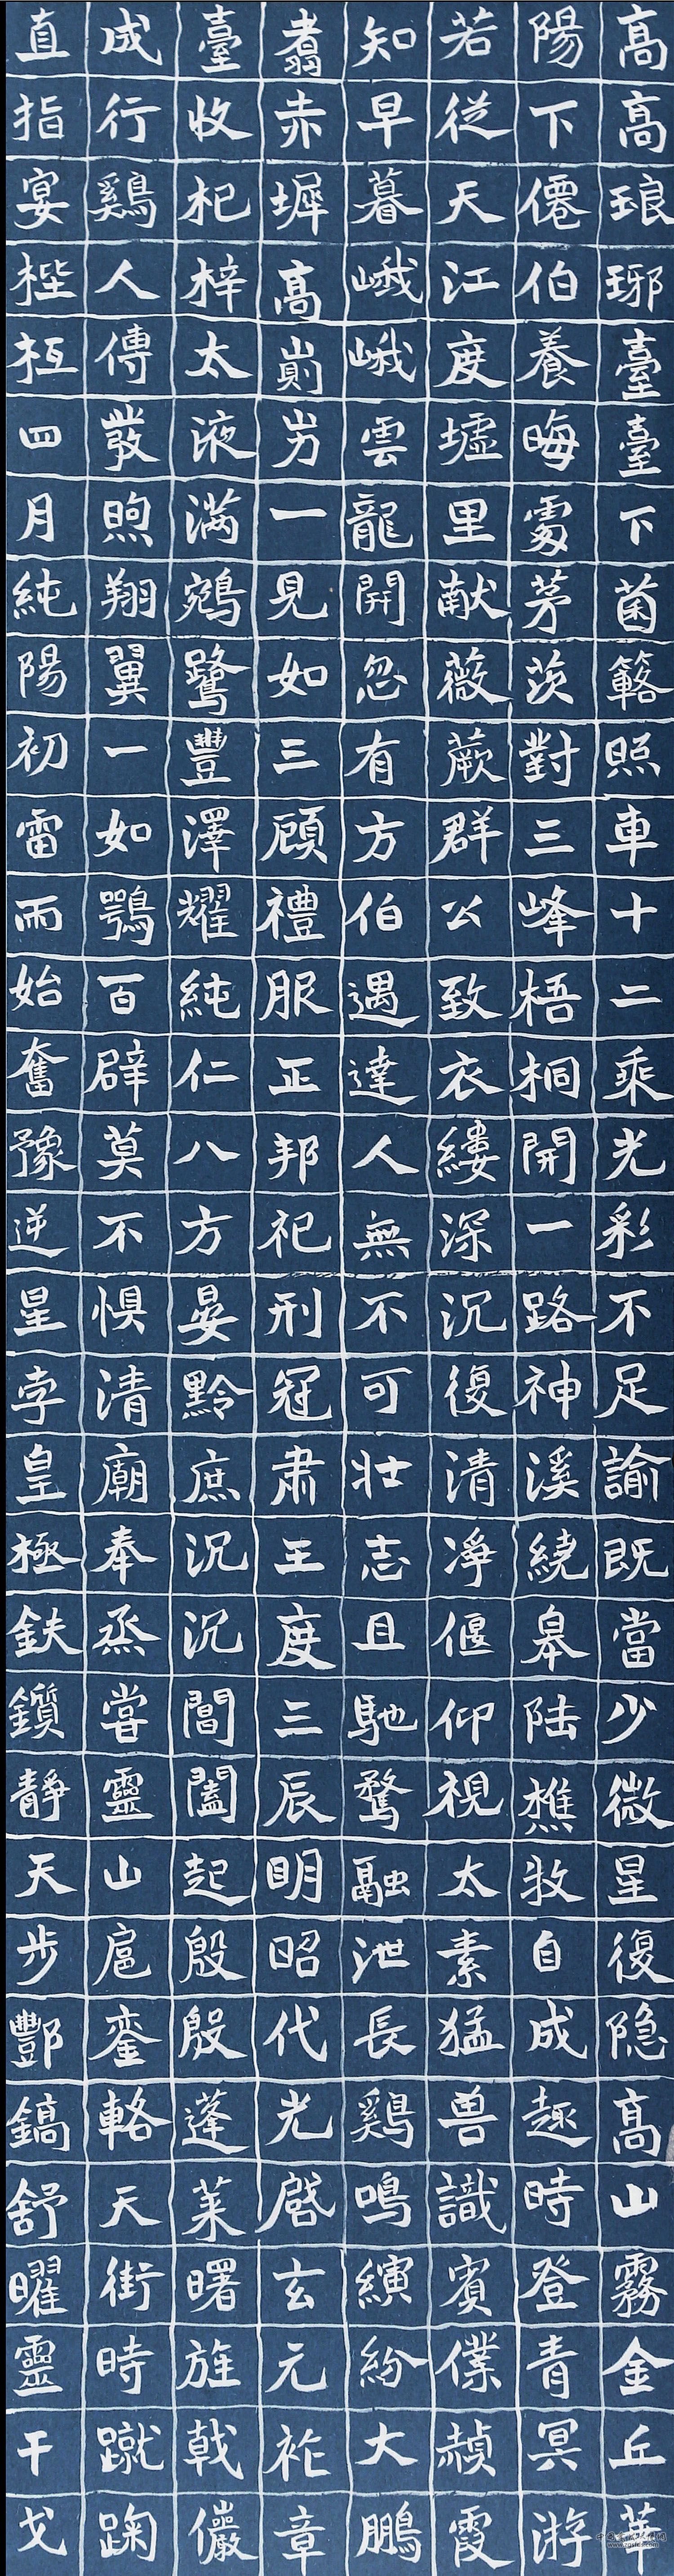 高高琅琊臺臺下菌簵照車十二乘光彩不足諭既當少微星復隐高山霧金丘華
陽下僊伯養晦處茅茨對三峰梧桐開一路神溪繞皋陆樵牧自成趣時登青冥游
若從天江度墟里献薇蕨群公致衣縷深沉復清凈偃仰視太素猛兽識賓僕赬霞
知早暮峨峨雲龍開忽有方伯遇達人無不可壯志且馳騖融泄長鷄鳴縯紛大鵬
翥赤墀高崱屴一見如三顧禮服正邦祀刑冠肃王度三辰明昭代光啓玄元祚章
臺收杞梓太液满鵷鷺豐澤耀純仁八方晏黔庶沉沉閶闔起殷殷蓬莱曙旌戟儼
成行鷄人傳發煦翔翼一如鶚百辟莫不惧清廟奉烝尝靈山扈鑾輅天街時蹴踘
直指宴梐枑四月純陽初雷雨始奮豫逆星孛皇極鈇鑕靜天步酆鎬舒曜靈干戈